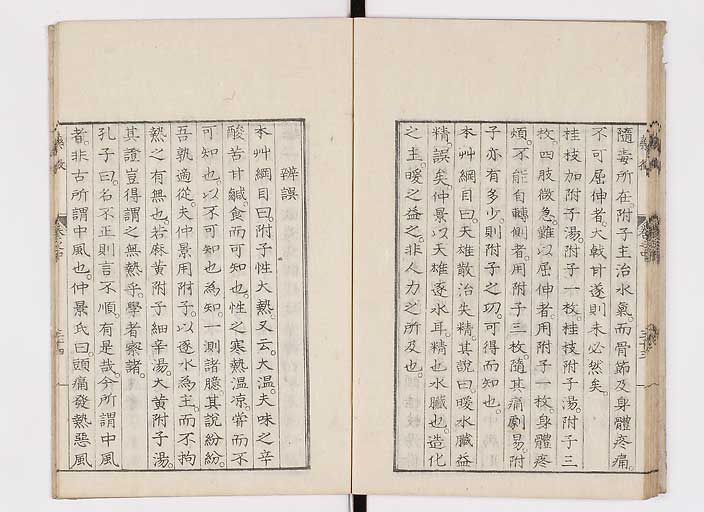 隨毒所在附子主治水氣而骨節及身體疼痛
不可屈伸者。大戟甘遂則未必然矣。
桂枝加附子湯。附子一枚。桂枝附子湯。附子三
枚。四肢微急。難以屈伸者。用附子一枚。身體疼
煩。不能自轉側者。用附子三枚。隨其痛劇易。附
子亦有多少。則附子之功。可得而知也。
本艸綱目曰。天雄散治失精。其說曰。暖水臟益
精。誤矣。仲景以天雄逐水耳。精也水臟也。造化
之主。暖之益之。非人力之所及也。
辨誤
本艸綱目曰。附子性大熱。又云。大溫。夫味之辛
酸苦甘鹹。食而可知也。性之寒熱溫凉。嘗而不
可知也。以不可知也為知。一測諸臆。其說紛紛。
吾孰適從。夫仲景用附子。以逐水為主。而不拘
熱之有無也。若麻黄附子細辛湯。大黄附子湯。
其證豈得謂之無熱乎。學者察諸。
孔子曰。名不正則言不順。有是哉。今所謂中風
者。非古所謂中風也。仲景氏曰。頭痛發熱惡風